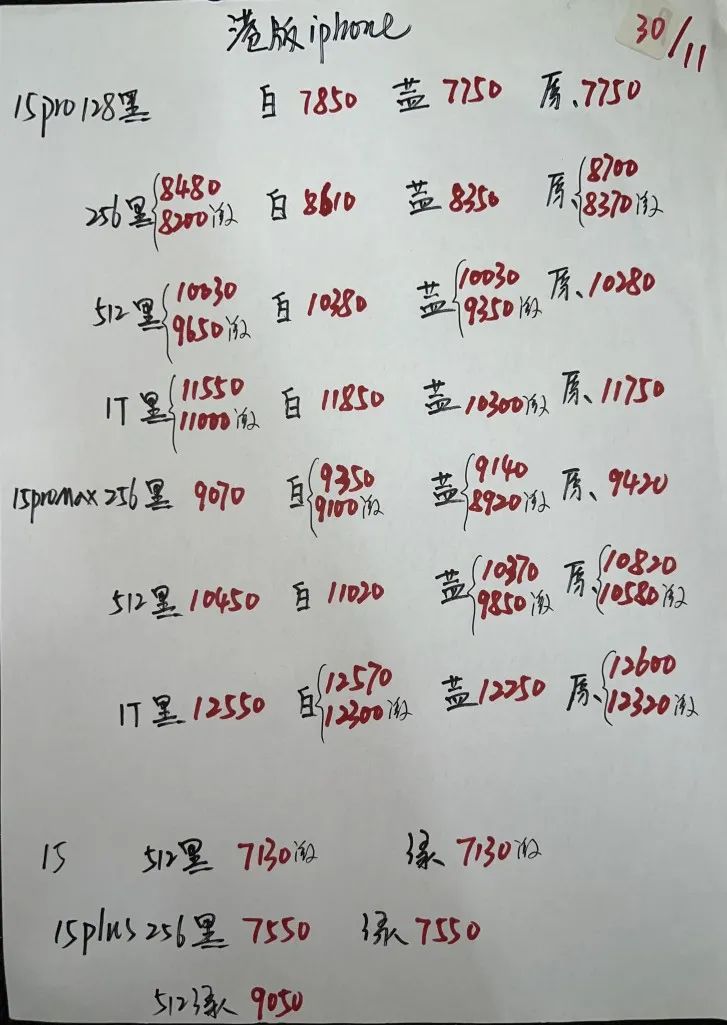 港版iphone
30/11
15pro128黑 白 7850 蓝 7750 原、7750
256黑 8480 8200激 白 8610 蓝 8350 原、8700 8370激
512黑 10030 9650激 白 10380 蓝 10030 9350激 原、10280
1T黑 11550 11000激 白 11850 蓝 10300激 原、11750
15promax256黑 9070 白 9350 9100激 蓝 9140 8920激 原、9420
512黑 10450 白 11020 蓝 10370 9850激 原、10820 10580激
1T黑 12550 白 12570 12300激 蓝 12250 原、12600 12320激
15 512黑 7130激 绿 7130激
15plus256黑 7550 绿 7550
512绿 9050